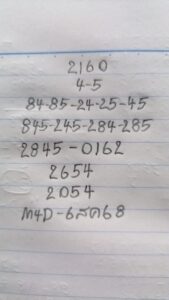 2160
4-5
84-85-24-25-45
845-245-284-285
2845-0162
2654
2054
M4D-6สค68